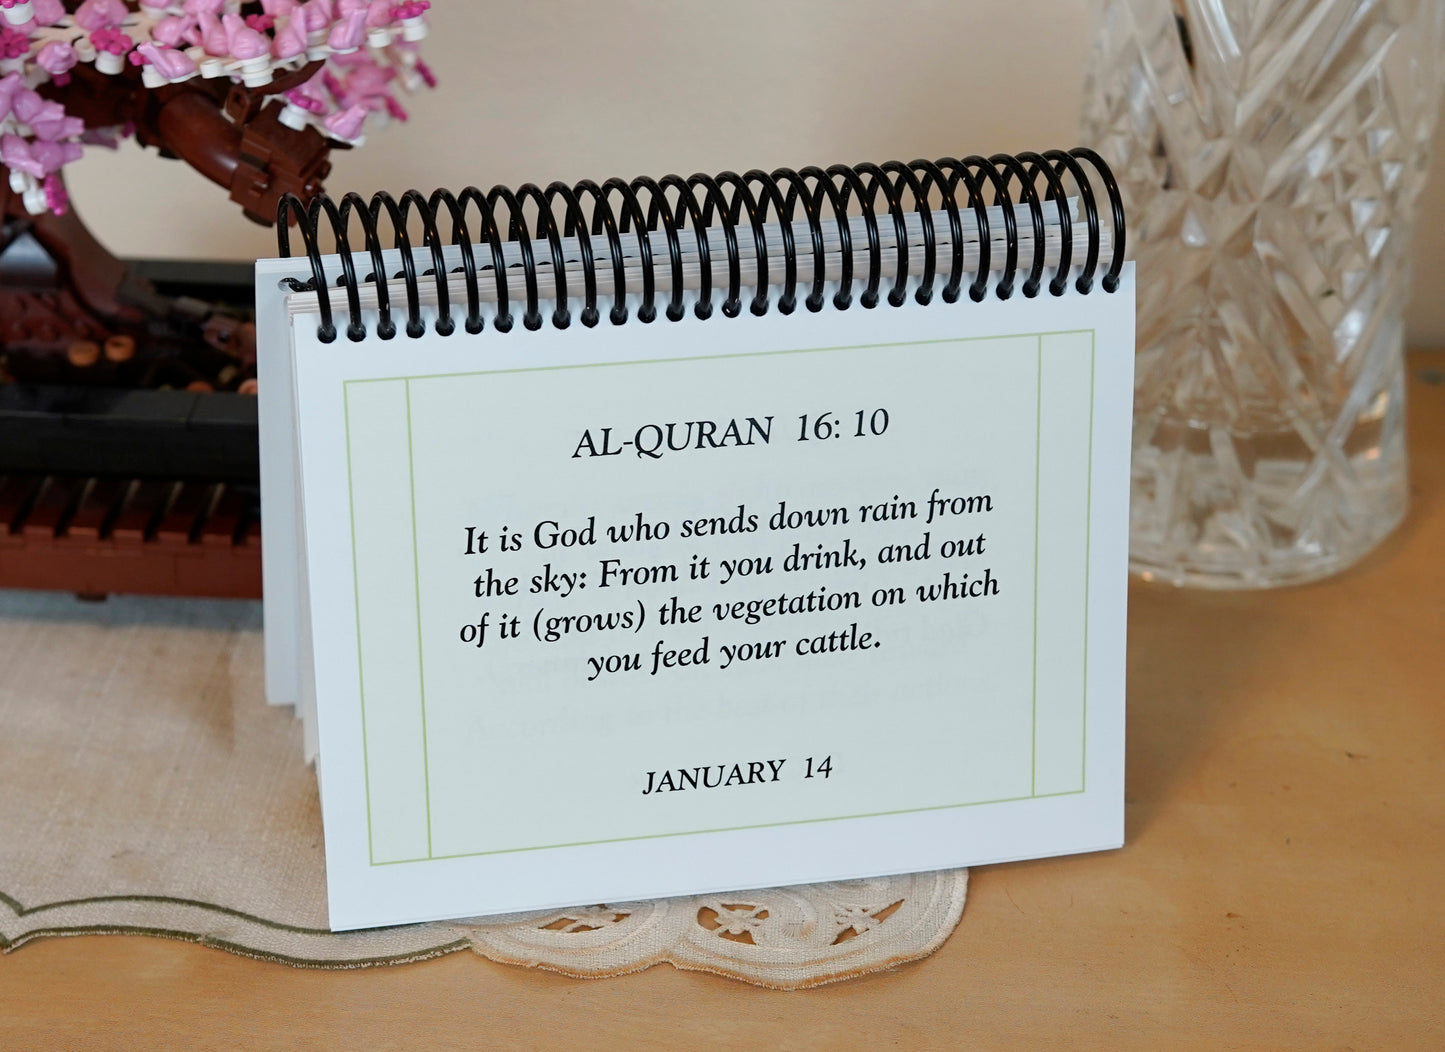 AL-QURAN 16: 10
It is God who sends down rain from
the sky: From it you drink, and out
of it (grows) the vegetation on which
you feed your cattle.
JANUARY 14